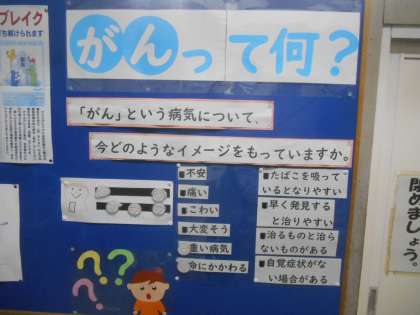 ブレイク
がんって何？
「がん」という病気について、
今どのようなイメージをもっていますか。
■不安
■痛い
■こわい
■大変そう
■重い病気
■命にかかわる
■たばこを吸って
いるとなりやすい
■早く発見する
と治りやすい
■治るものと治ら
ないものがある
■自覚症状がな
い場合がある
???
閉めましょう。